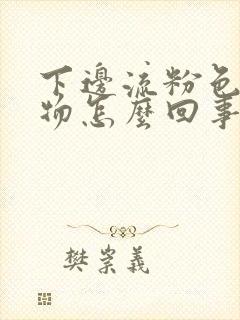 下邊流粉色
物怎麼回事
樊崇義